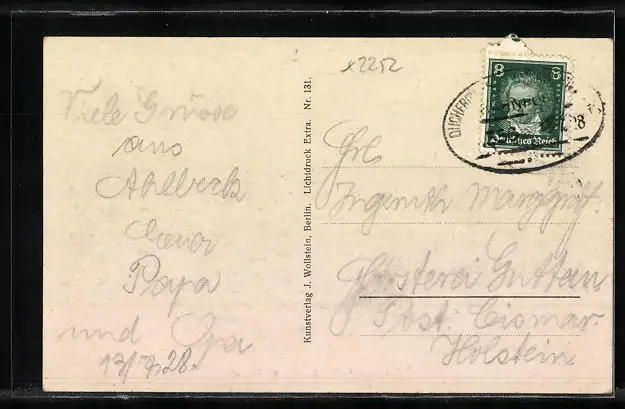 Viele Grüsse
aus
Ahlbeck
Euer
Papa
und Opa
13/7.28.
Kunstverlag J. Wollstein, Berlin. Lichtdruck Extra. Nr. 131.
x2252
8 8
Deutsches Reich
28
Frl
Marggraf.
Försterei Guttau
Post. Cismar.
Holstein